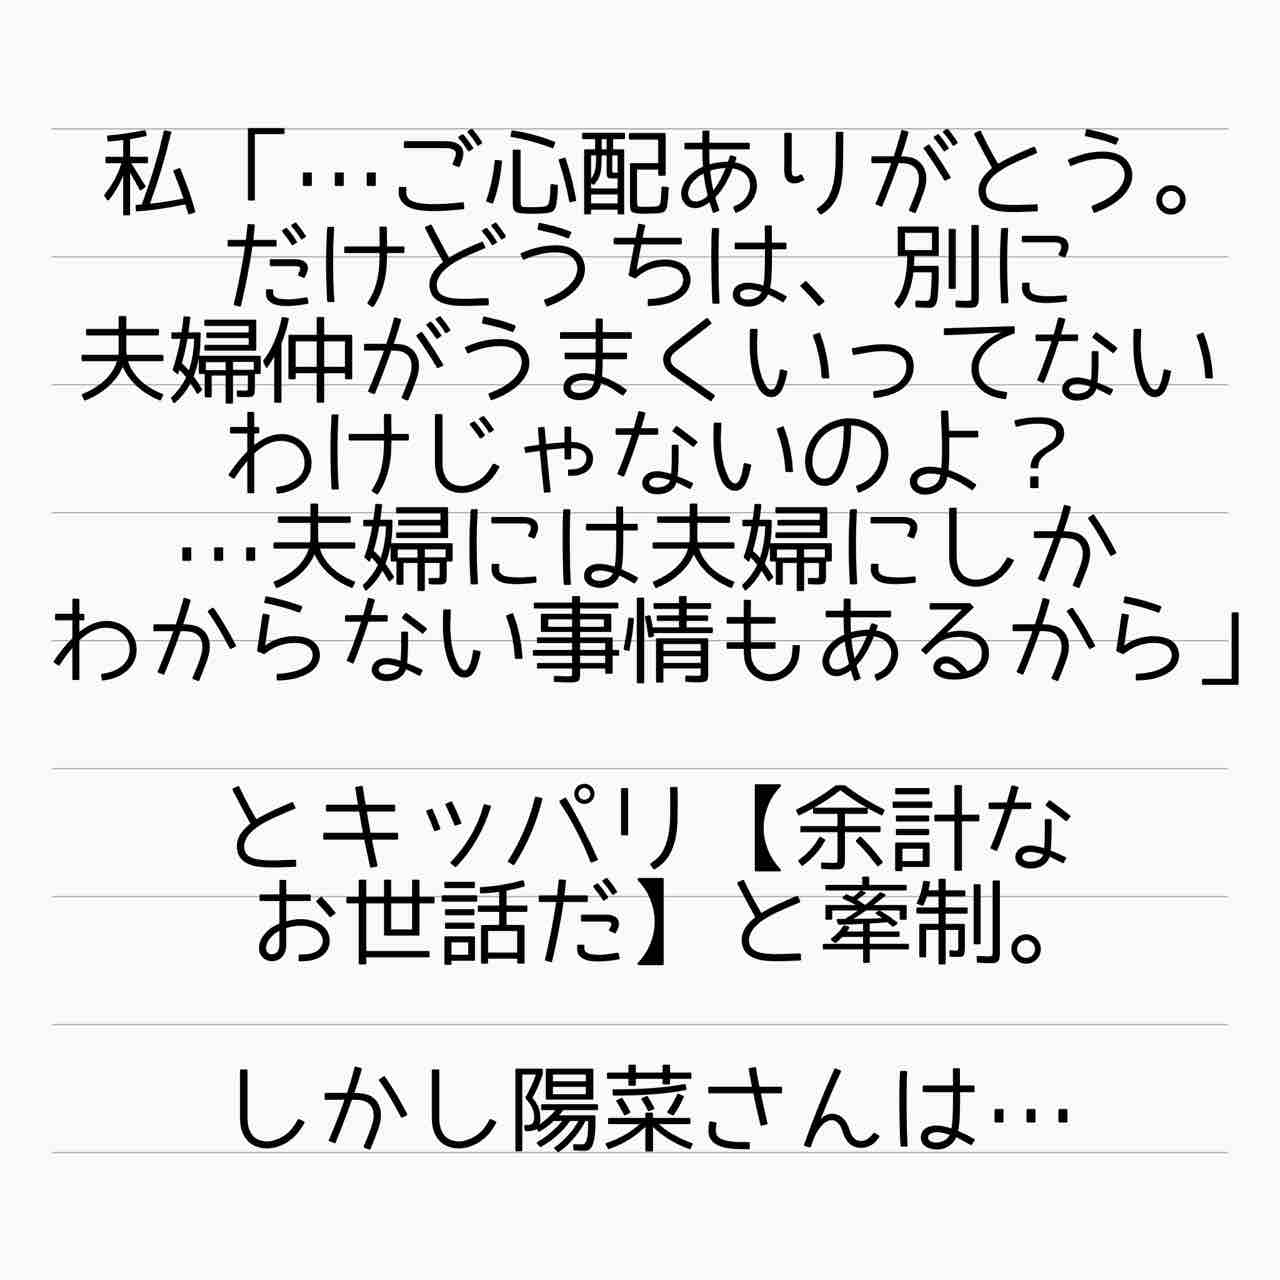 私「…ご心配ありがとう。
だけどうちは、別に
夫婦仲がうまくいってない
わけじゃないのよ？
…夫婦には夫婦にしか
わからない事情もあるから」
とキッパリ【余計な
お世話だ】と牽制。
しかし陽菜さんは…